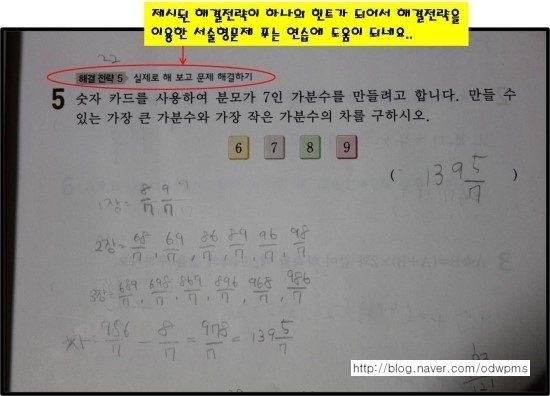 제시된 해결전략이 하나의 힌트가 되어서 해결전략을
이용한 서술형문제 푸는 연습에 도움이 되네요..
22
해결 전략 5 실제로 해 보고 문제 해결하기
5 숫자 카드를 사용하여 분모가 7인 가분수를 만들려고 합니다. 만들 수
있는 가장 큰 가분수와 가장 작은 가분수의 차를 구하시오.
6 7 8 9
( 139 5/7 )
1장= 8/7, 9/7
2장= 68/7, 69/7, 86/7, 89/7, 96/7, 98/7
3장= 689/7, 698/7, 869/7, 896/7, 968/7, 986/7
차= 986/7 - 8/7 = 978/7 = 139 5/7
http://blog.naver.com/odwpms